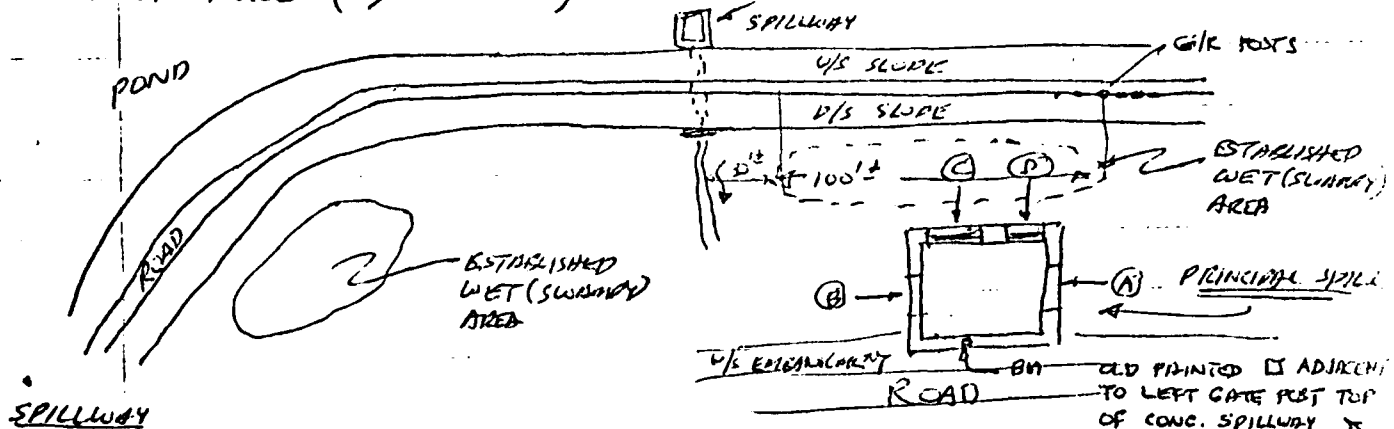 SPILLWAY
G/R POSTS
POND
U/S SLOPE
D/S SLOPE
ROAD
100'±
C
D
ESTABLISHED
WET (SWAMPY)
AREA
ESTABLISHED
WET (SWAMPY)
AREA
B
A
PRINCIPAL
U/S EMBANKMENT
BM
OLD PAINTED □ ADJACENT
TO LEFT GATE POST TOP
OF CONC. SPILLWAY
ROAD
SPILLWAY